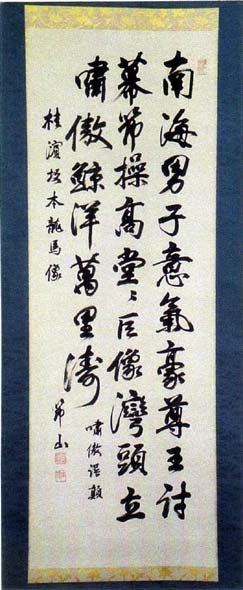 南海男子意氣豪尊王討
幕節操高堂〻巨像灣頭立
嘯傲鯨洋萬里濤
嘯傲
桂濱坂本龍馬像
山